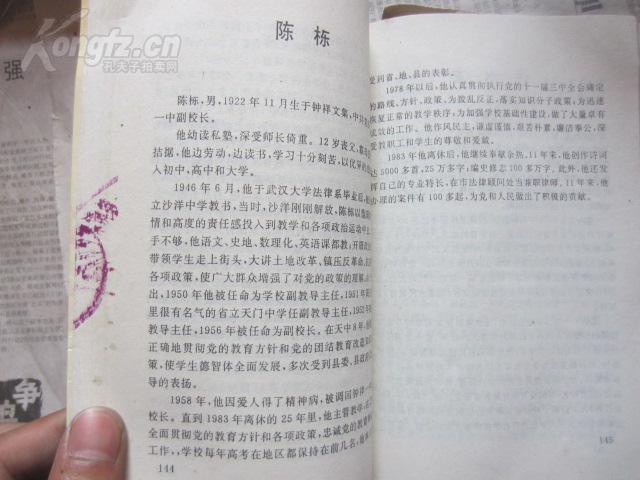 Kongfz.cn
孔夫子拍卖网
强
争
陈 栋
陈栋,男,1922年11月生于钟祥文集,中共党
一中副校长。
他幼读私塾,深受师长倚重。12岁丧父,
拮据,他边劳动、边读书,学习十分刻苦,以优异的
入初中,高中和大学。
1946年6月,他于武汉大学法律系毕业后,
立沙洋中学教书,当时,沙洋刚刚解放,陈栋以饱
情和高度的责任感投入到教学和各项政治运动中
手不够,他语文、史地、数理化、英语课都教;开辟政
带领学生走上街头,大讲土地改革、镇压反革命、
各项政策,使广大群众增强了对党的政策的理解
出,1950年他被任命为学校副教导主任,1951年
里很有名气的省立天门中学任副教导主任,1952年
教导主任,1956年被任命为副校长。在天中8年,
正确地贯彻党的教育方针和党的团结教育改造知
策,使学生德智体全面发展,多次受到县委、县政府
导的表扬。
1958年,他因爱人得了精神病,被调回钟祥一
校长。直到1983年离休的25年里,他主管教学,
全面贯彻党的教育方针和各项政策,忠诚党的教育
工作,,学校每年高考在地区都保持在前几名,
144
受到省、地、县的表彰。
1978年以后,他认真贯彻执行党的十一届三中全会确定
的路线、方针、政策、为拨乱反正,落实知识分子政策,为迅速
恢复正常的教学秩序,为加强学校基础性建设,做了大量卓有
成效的工作。他作风民主,谦虚谨慎,艰苦朴素,廉洁奉公,深
受教职工和学生的尊敬和爱戴。
1983年他离休后,他继续奉献余热,11年来,他创作诗词
达5000多首,25万多字;编史修志100多万字。此外,他还发
挥自己的专业特长,在市法律顾问处当兼职律师,11年来,他
办理的案件有100多起,为党和人民做出了积极的贡献。
145